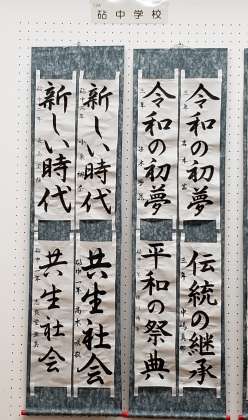 砧中学校
令和の初夢
令和の初夢
新しい時代
新しい時代
伝統の継承
平和の祭典
共生社会
共生社会